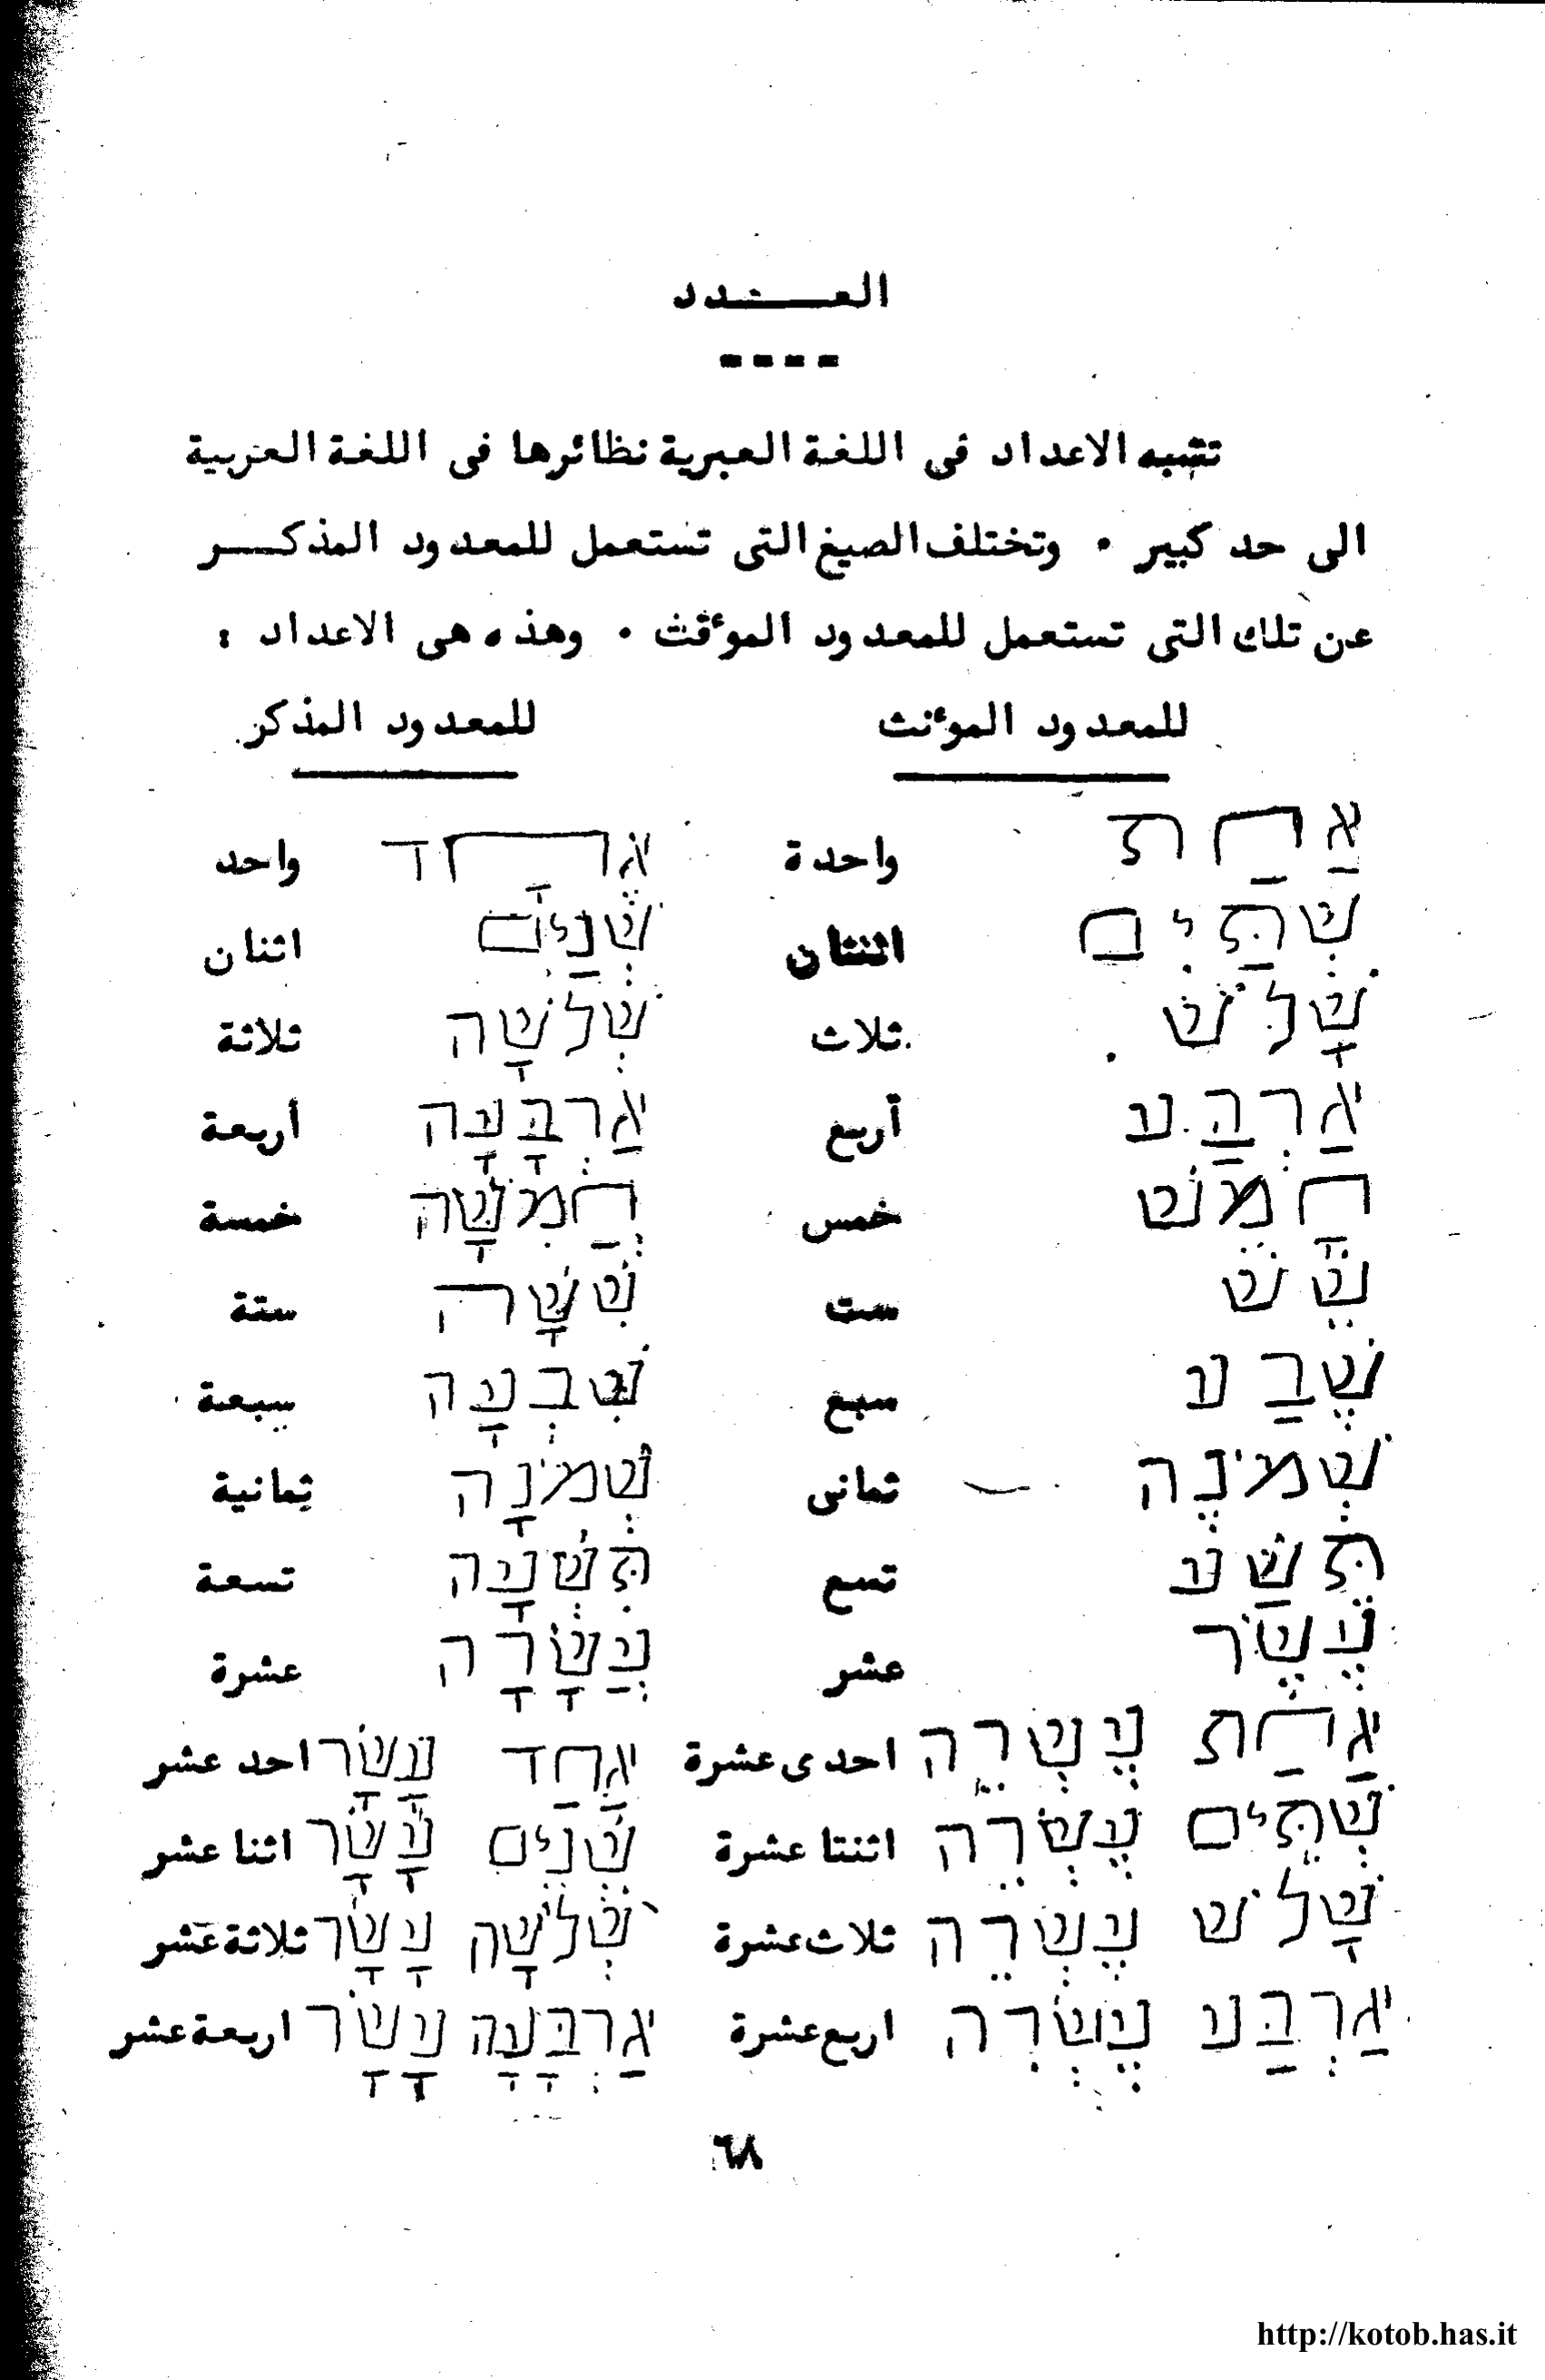 العـــدد
تشبه الاعداد فى اللغة العبرية نظائرها فى اللغة العربية
الى حد كبير . وتختلف الصيغ التى تستعمل للمعدود المذكــر
عن تلك التى تستعمل للمعدود الموءنث . وهذه هى الاعداد :
للمعدود الموءنث للمعدود المذكر
אַחַת واحدة אֶחָד واحد
שְׁתַּיִם اثنتان שְׁנַיִם اثنان
שָׁלֹשׁ ثلاث שְׁלֹשָׁה ثلاثة
אַרְבַּע أربع אַרְבָּעָה أربعة
חָמֵשׁ خمس חֲמִשָּׁה خمسة
שֵׁשׁ ست שִׁשָּׁה ستة
שֶׁבַע سبع שִׁבְעָה سبعة
שְׁמֹנֶה ثمانى שְׁמֹנָה ثمانية
תֵּשַׁע تسع תִּשְׁעָה تسعة
עֶשֶׂר عشر עֲשָׂרָה عشرة
אַחַת עֶשְׂרֵה احدى عشرة אַחַד עָשָׂר احد عشر
שְׁתֵּים עֶשְׂרֵה اثنتا عشرة שְׁנֵים עָשָׂר اثنا عشر
שָׁלֹשׁ עֶשְׂרֵה ثلاث عشرة שְׁלֹשָׁה עָשָׂר ثلاثة عشر
אַרְבַּע עֶשְׂרֵה اربع عشرة אַרְבָּעָה עָשָׂר اربعة عشر
٦٨
http://kotob.has.it